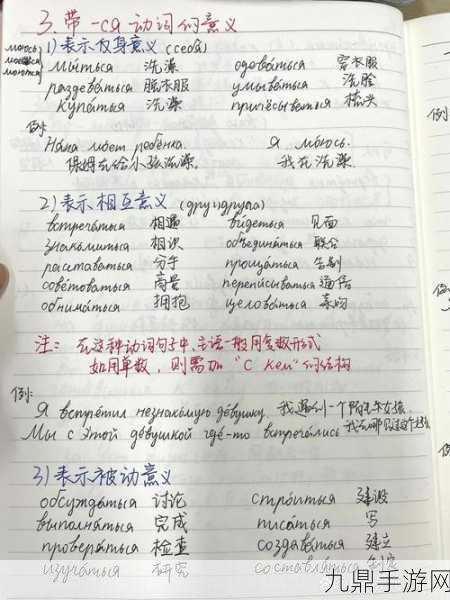 3. 带 -ся 动词的意义
моюсь
моешься
моются
1) 表示反身意义 (себя)
мыться 洗澡 одеваться 穿衣服
раздеваться 脱衣服 умываться 洗脸
купаться 洗澡 причёсываться 梳头
例:
Няня моет ребёнка. Я моюсь.
保姆在给小孩洗澡. 我在洗澡.
2) 表示相互意义 (друг друга)
встречаться 相遇 видеться 见面
знакомиться 相识 объединяться 联合
расставаться 分手 прощаться 告别
советоваться 商量 переписываться 通信
обниматься 拥抱 целоваться 亲吻
注: 在这种动词句子中, 主语一般用复数形式
如用单数, 则需加 "с кем" 的结构
例:
Я встретил незнакомую девушку. 我遇到一个陌生女孩.
Мы с этой девушкой где-то встречались
3) 表示被动意义
обсуждаться 讨论 строиться 建设
выполняться 完成 писаться 写
проверяться 检查 создаваться 建立
изучаться 研究 составляться 制定
例
九鼎手游网